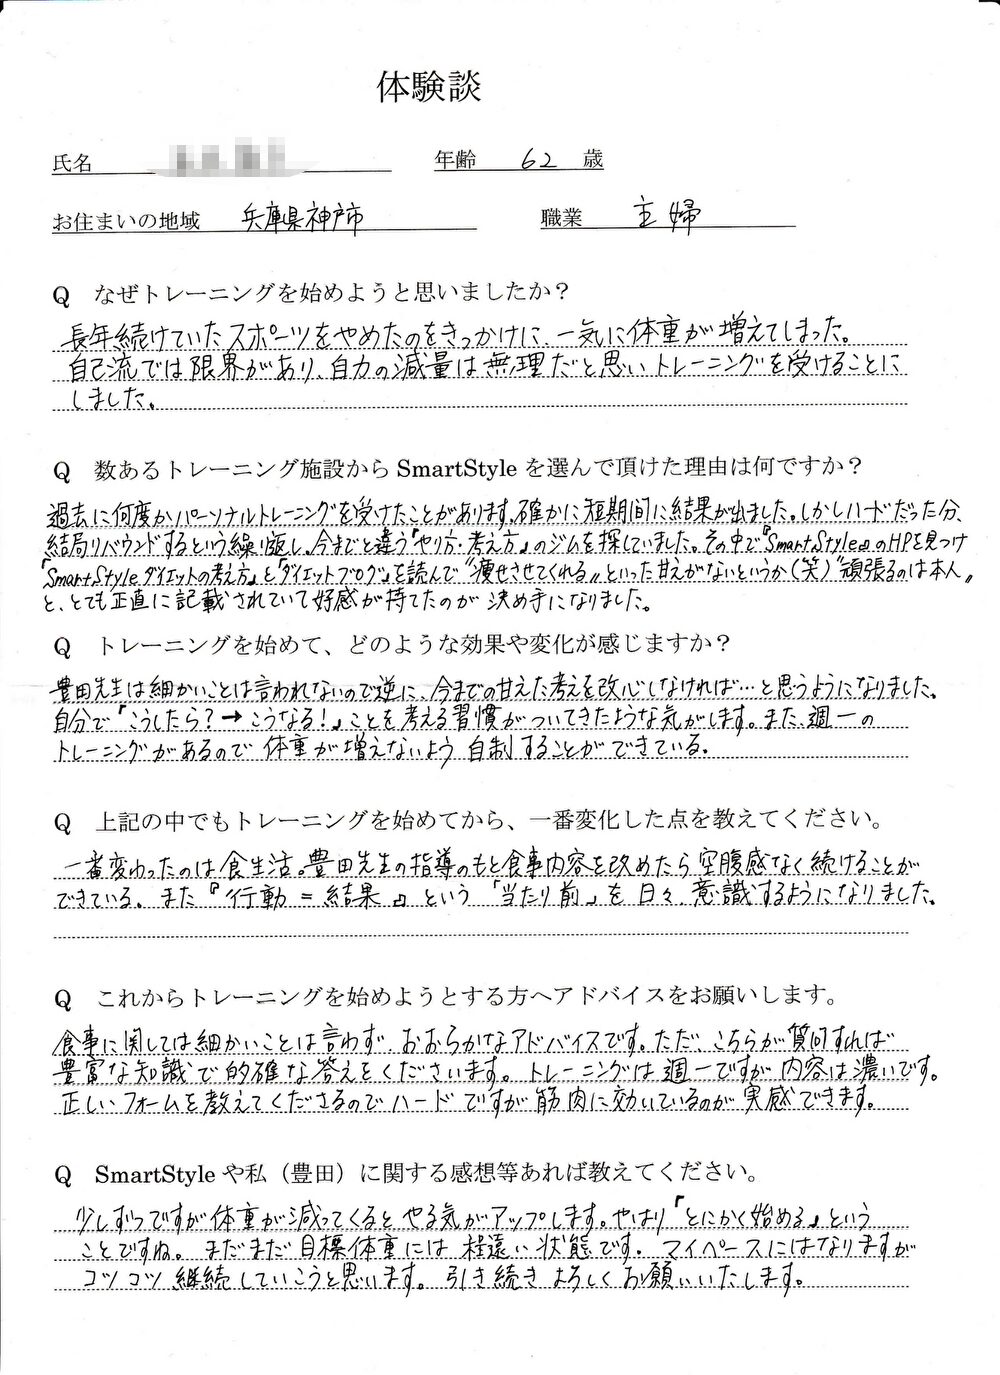 体験談
氏名 年齢 62 歳
お住まいの地域 兵庫県神戸市 職業 主婦
Q なぜトレーニングを始めようと思いましたか？
長年続けていたスポーツをやめたのをきっかけに、一気に体重が増えてしまった。
自己流では限界があり、自力の減量は無理だと思いトレーニングを受けることに
しました。
Q 数あるトレーニング施設から SmartStyle を選んで頂けた理由は何ですか？
過去に何度かパーソナルトレーニングを受けたことがあります。確かに短期間に結果が出ました。しかしハードだった分、
結局リバウンドするという繰り返し。今までと違う「やり方・考え方」のジムを探していました。その中で『SmartStyle』のHPを見つけ
『SmartStyleダイエットの考え方』と『ダイエットブログ』を読んで“痩せさせてくれる”といった甘えがないというか（笑）“頑張るのは本人”
と、とても正直に記載されていて好感が持てたのが決め手になりました。
Q トレーニングを始めて、どのような効果や変化が感じますか？
豊田先生は細かいことは言われないので逆に、今までの甘えた考えを改心しなければ…と思うようになりました。
自分で「こうしたら？→こうなる！」ことを考える習慣がついてきたような気がします。また、週一の
トレーニングがあるので体重が増えないよう自制することができている。
Q 上記の中でもトレーニングを始めてから、一番変化した点を教えてください。
一番変わったのは食生活。豊田先生の指導のもと食事内容を改めたら空腹感なく続けることが
できている。また『行動＝結果』という「当たり前」を日々、意識するようになりました。
Q これからトレーニングを始めようとする方へアドバイスをお願いします。
食事に関しては細かいことは言わず、おおらかなアドバイスです。ただ、こちらが質問すれば
豊富な知識で的確な答えをくださいます。トレーニングは週一ですが内容は濃いです。
正しいフォームを教えてくださるのでハードですが筋肉に効いているのが実感できます。
Q SmartStyle や私（豊田）に関する感想等あれば教えてください。
少しずつですが体重が減ってくるとやる気がアップします。やはり『とにかく始める』という
ことですね。まだまだ目標体重には程遠い状態です。マイペースにはなりますが
コツコツ継続していこうと思います。引き続きよろしくお願いいたします。